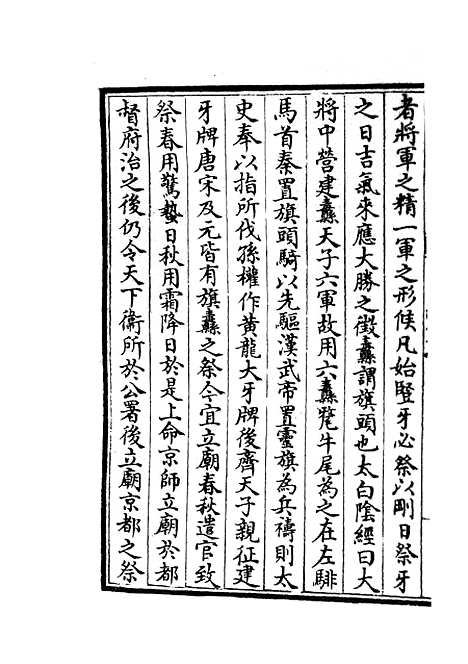 者將軍之精一軍之形候凡始豎牙必祭以剛日祭牙
之日吉氣來應大勝之徵纛謂旗頭也太白陰經曰大
將中營建纛天子六軍故用六纛氂牛尾為之在左騑
馬首秦置旗頭騎以先驅漢武帝置靈旗為兵禱則太
史奉以指所伐孫權作黄龍大牙牌後齊天子親征建
牙牌唐宋及元皆有旗纛之祭今宜立廟春秋遣官致
祭春用驚蟄日秋用霜降日於是上命京師立廟於都
督府治之後仍令天下衞所於公署後立廟京都之祭